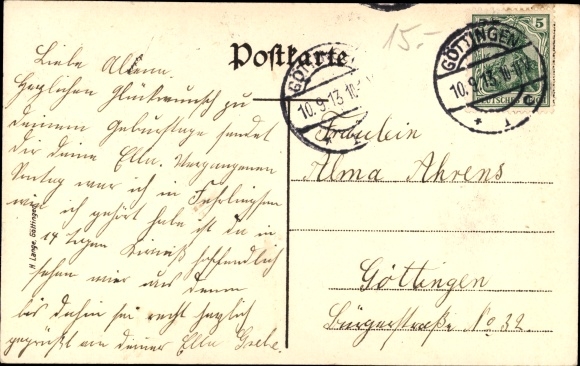 15.-
Postkarte
GÖTTINGEN
10.9.13.10-11V.
* 1
GÖTTINGEN
10.9.13.10-11V.
* 1
5
DEUTSCHES REICH
Liebe Alma.
Herzlichen Glückwunsch zu
deinem Geburtstage sendet
dir deine Ella. Vergangenen
war ich in
wie ich gehört habe ist da in
14 Tagen hoffentlich
sehen wir uns dann
bis dahin sei recht herzlich
gegrüßt von deiner Ella
Fräulein
Alma Ahrens
Göttingen
Bürgerstraße No 32.
H. Lange, Göttingen